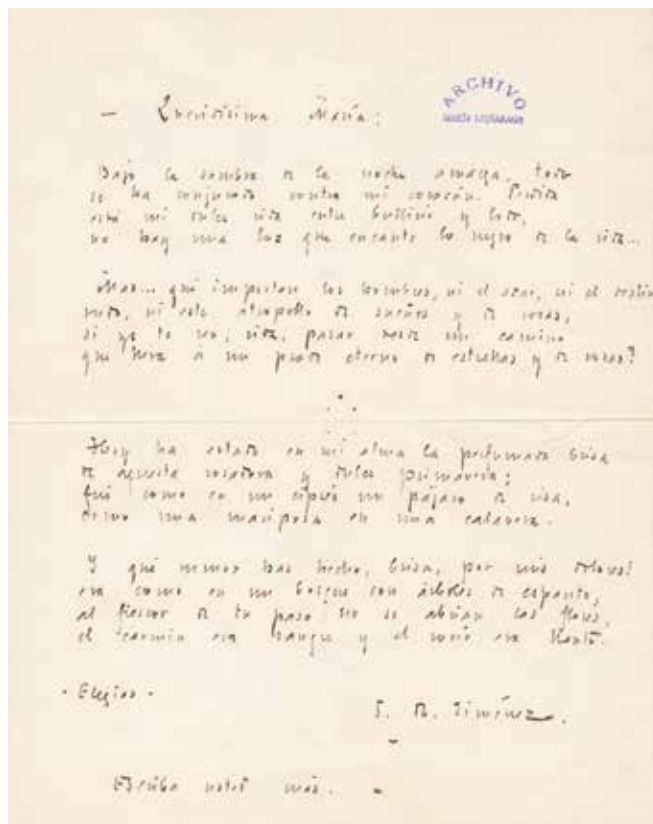 – Queridísima María:
ARCHIVO
Bajo la sombra de la noche amarga, todo
se ha conjurado contra mi corazón. Perdida
está mi dulce vida entre bullicio y lodo,
no hay una luz que encante lo negro de la vida...
Mas... qué importan los hombres, ni el azar, ni el destino
mudo, ni este atropello de sueños y de cosas,
si yo te veo, vida, pasar un camino
que lleva a un prado eterno de estrellas y de rosas?
Hoy ha estado en mi alma la perfumada brisa
de aquesta y dulce primavera;
fué como en un ciprés un pájaro de risa,
como una mariposa en una calavera.
Y qué rumor has hecho, brisa, por mis dolores!
era como en un bosque con árboles de espanto,
al de tu paso no se abrían las flores,
el carmín era sangre y el rocío era llanto.
- Elegías -
J. R. Jiménez.
Escriba usted más. -